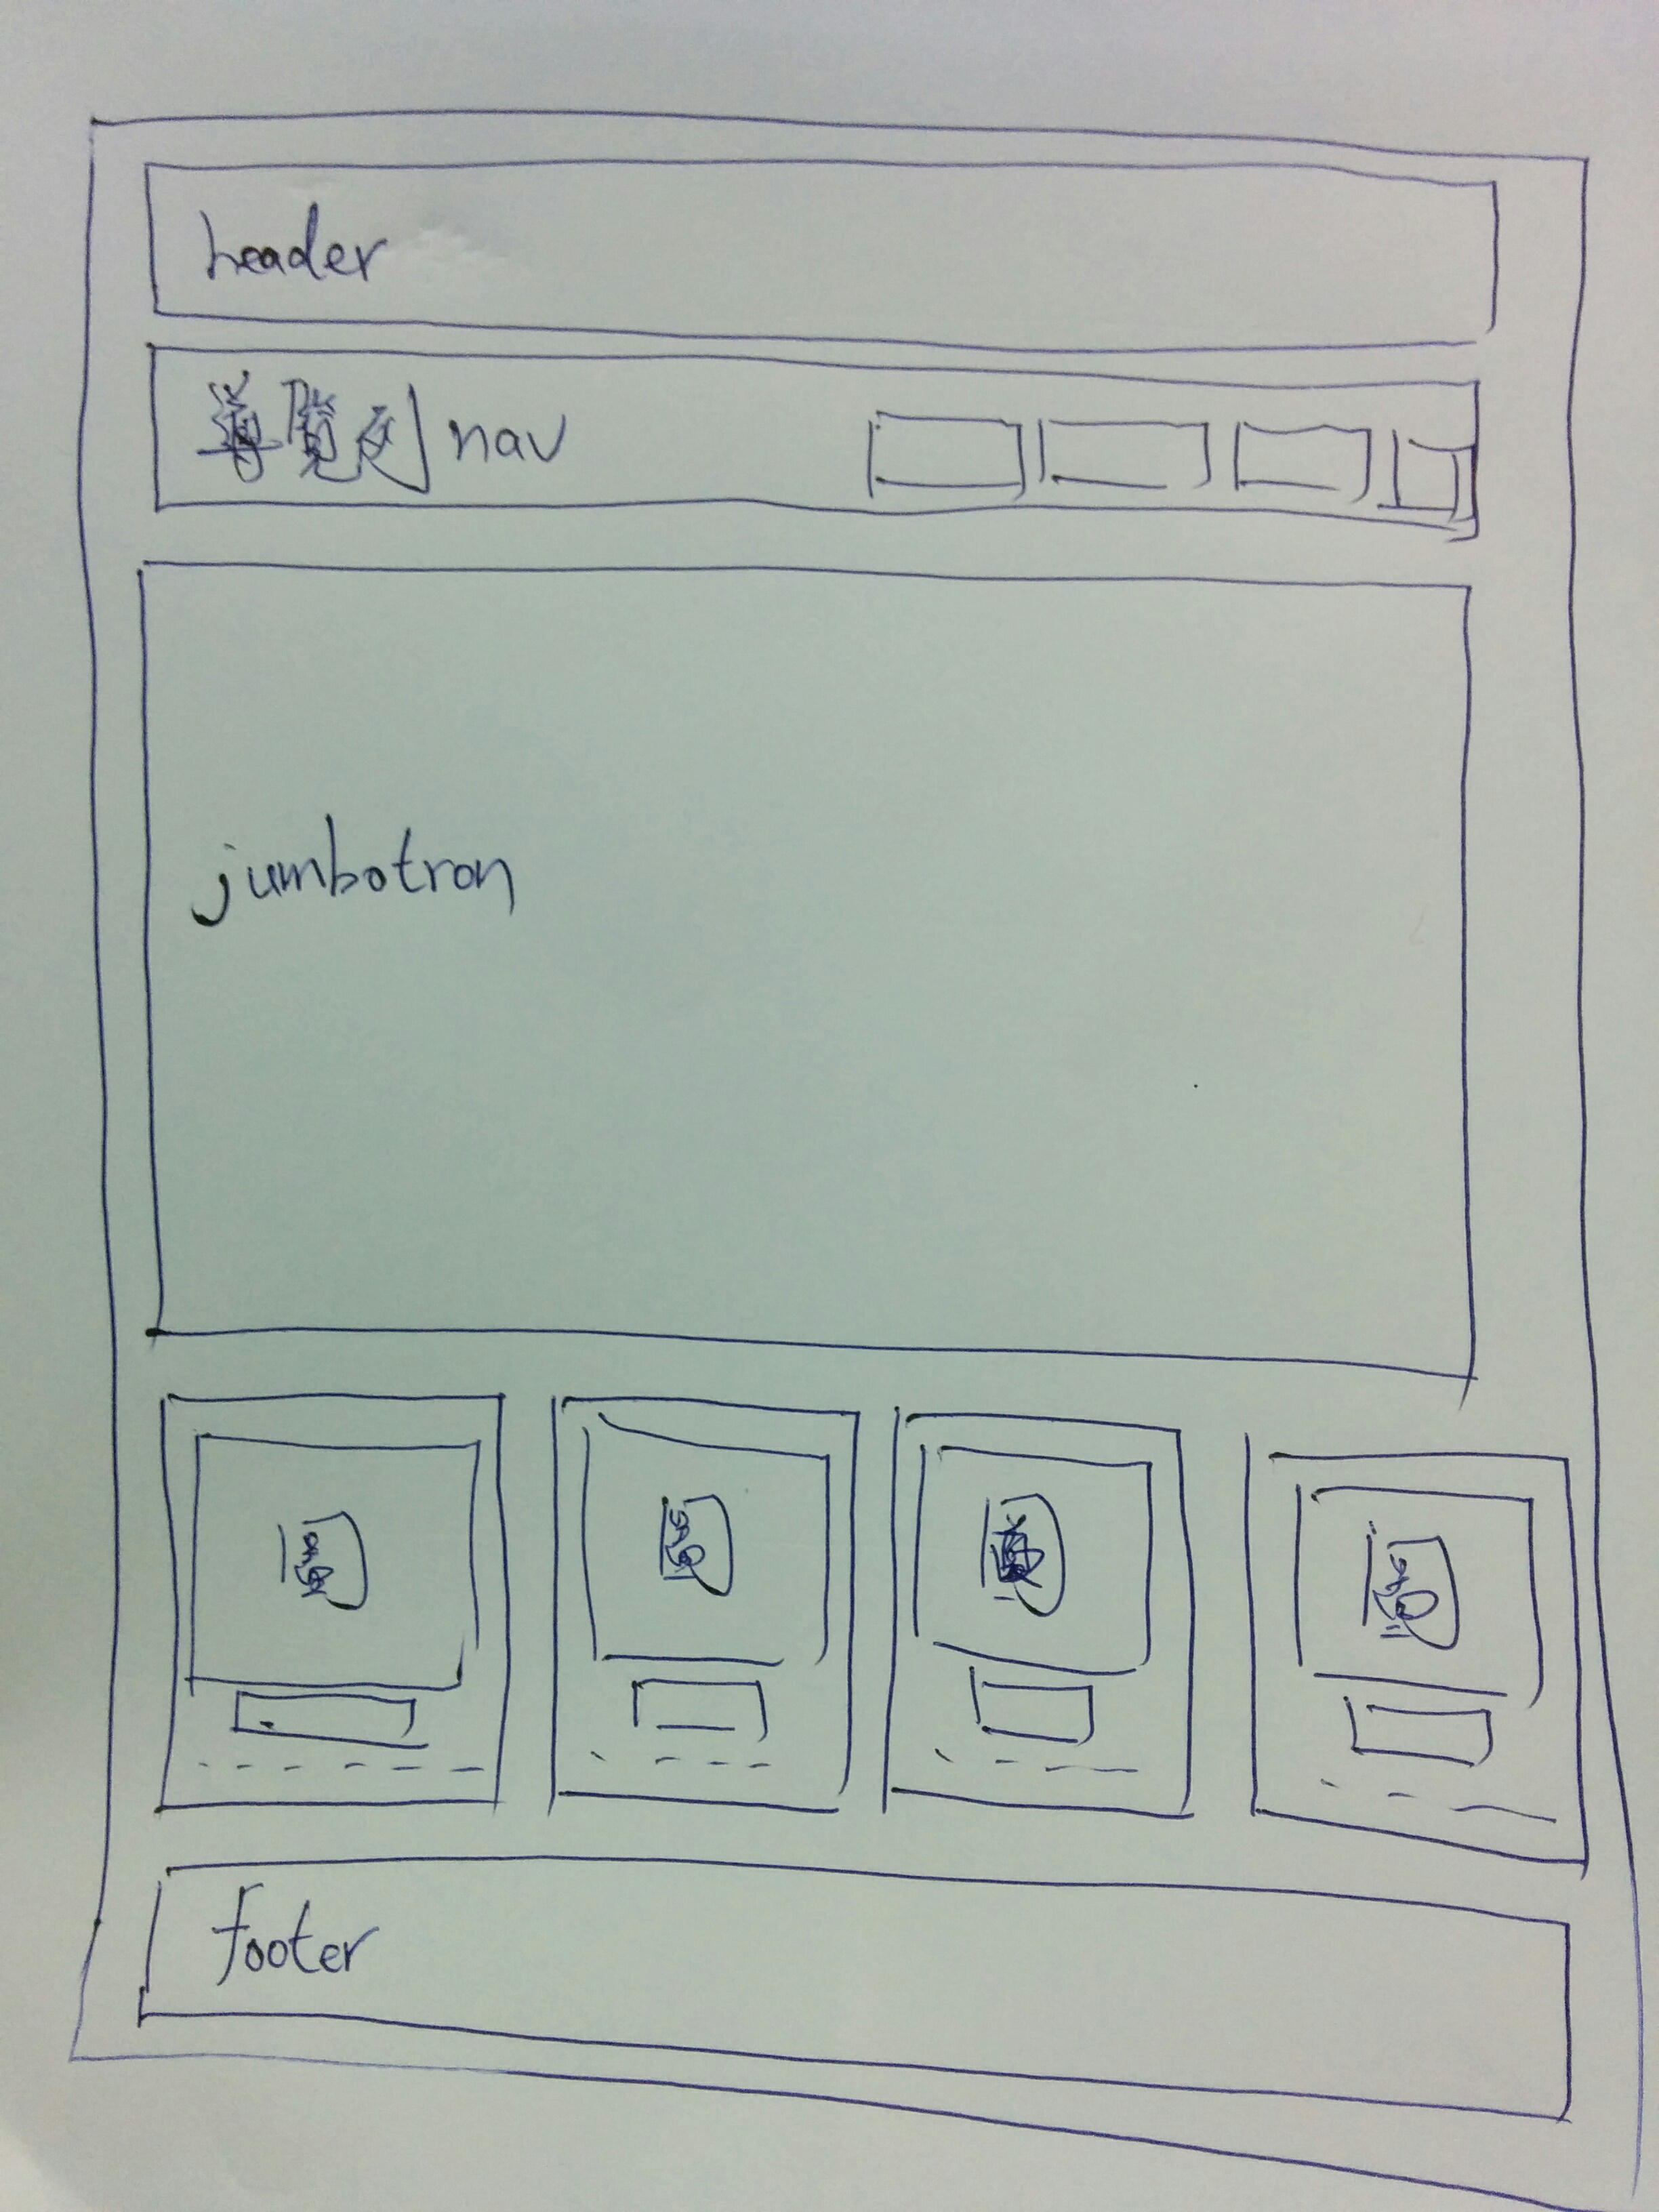 header
導覽列 nav
jumbotron
圖 圖 圖 圖
footer